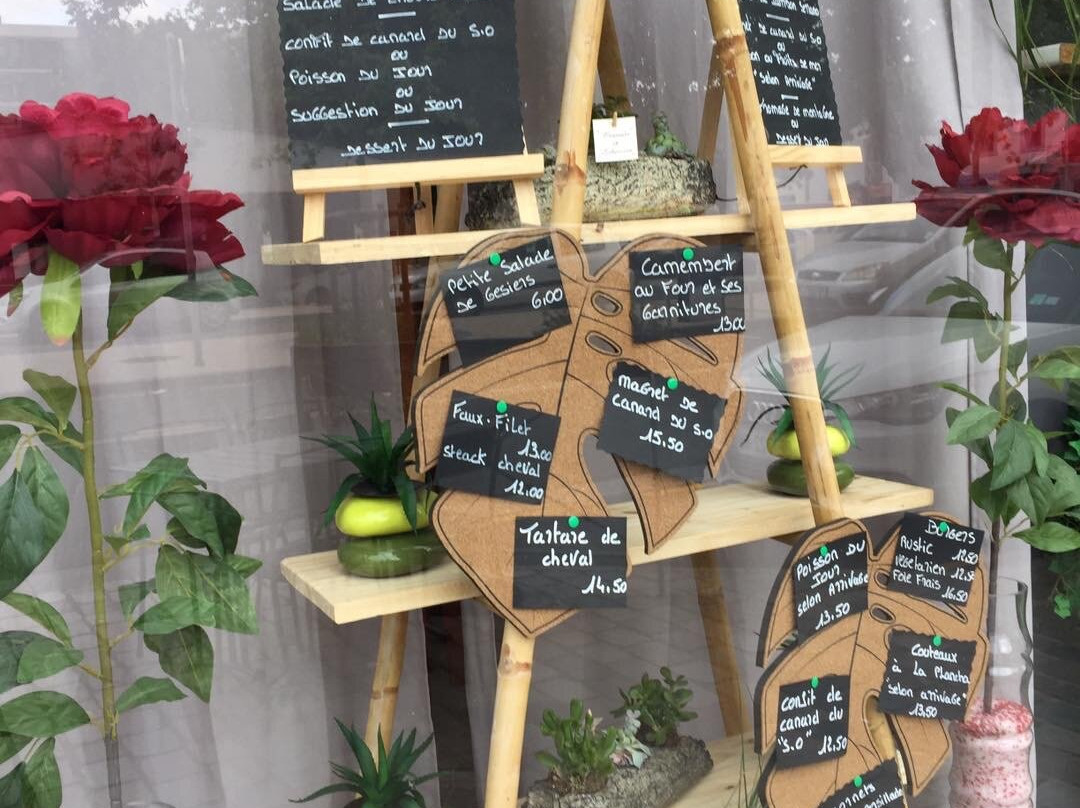 Salade de
confit de canard du S.O
ou
Poisson du Jour
ou
Suggestion du Jour
Dessert du Jour
de canard du S.O
ou
"selon Arrivage"
ou
Dessert du Jour
Petite Salade
de Gesiers
6.00
Camembert
au Four et ses
Garnitures
13.00
Faux-Filet
13.00
steack cheval
12.00
Magret de
canard du S.O
15.50
Tartare de
cheval
14.50
Poisson du
Jour
selon Arrivage
13.50
Burgers
Rustic 12.50
végétarien 12.50
Foie Frais
16.50
Couteaux
à La Plancha
"selon arrivage"
13,50
Confit de
canard du
"S.O" 12.50